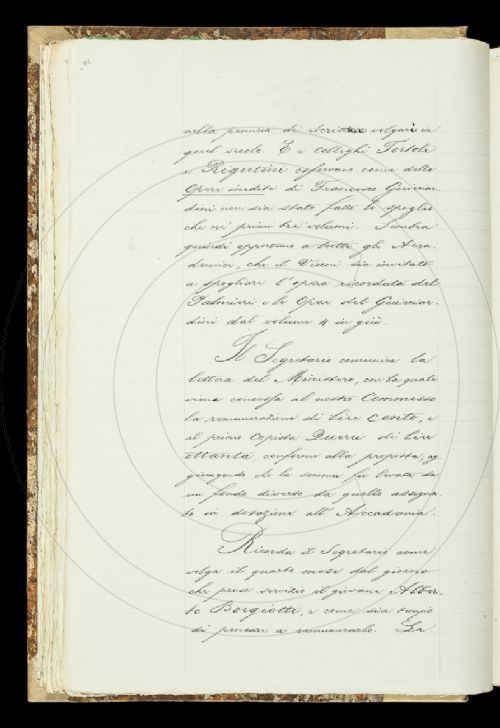 nella penuria di Scrittori volgari in
quel secolo. E i Colleghi Tortoli
e Rigutini osservano come delle
Opere inedite di Francesco Guicciar-
dini non sia stato fatto lo spoglio
che ne' primi tre volumi. Sembra
quindi opportuno a tutti gli Acca-
demici, che il sia invitato
a spogliare l'opera ricordata del
Palmieri e le Opere del Guicciar-
dini dal volume 4 in giù.
Il Segretario comunica la
lettera del Ministero, con la quale
viene concessa al nostro Commesso
la remunerazione di Lire cento, e
al primo Copista Querci di Lire
ottanta, conforme alla proposta; ag
giungendo che la somma fu levata da
un fondo diverso da quello assegna-
to in dotazione all' Accademia.
Ricorda il Segretario come
volga il quarto mese dal giorno
che prese servizio il giovane Alber-
to Borgiotti, e come sia tempo
di pensare a remunerarlo. La